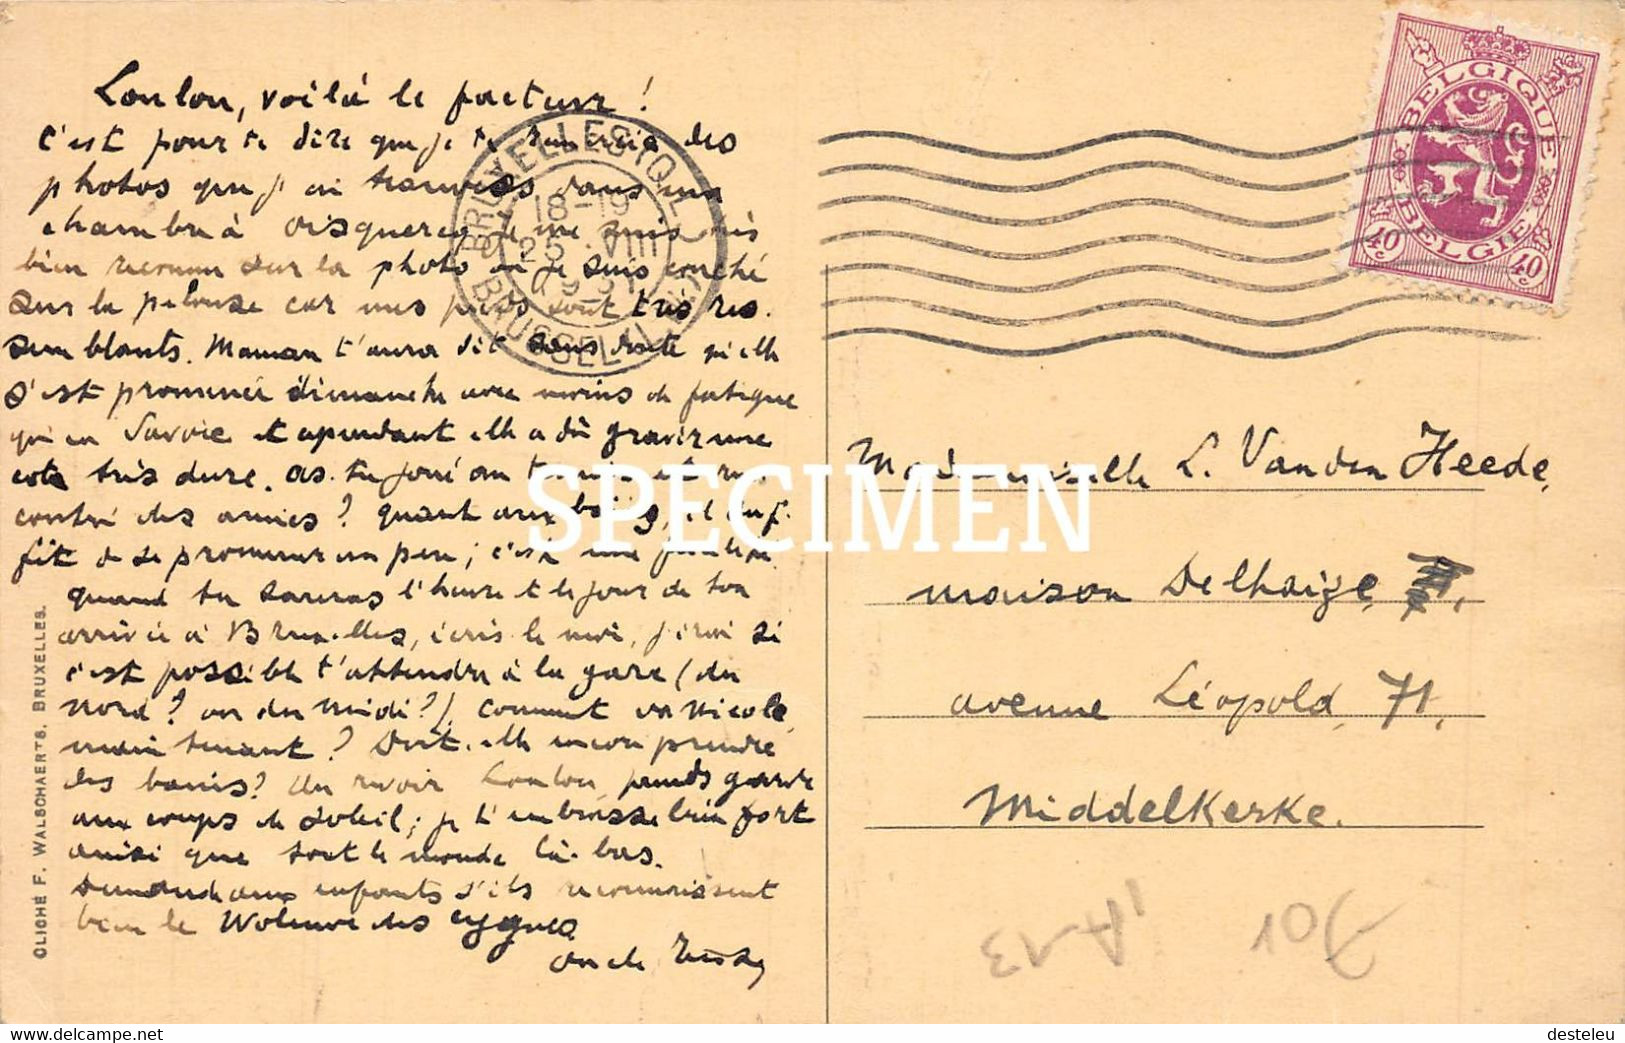 Loulou, voilà le facteur !
C'est pour te dire que je te remercie des
photos que j'ai trouvées dans ma
chambre à Oisquercq. Je me suis très
bien reconnu sur la photo où je suis couché
sur la pelouse car mes pieds sont très res-
semblants. Maman t'aura dit sans doute qu'elle
s'est promenée dimanche avec moins de fatigue
qu'en Savoie et cependant elle a dû gravir une
côte très dure. As-tu joué au tennis et ren-
contré des amies ? Quant aux bains, il suf-
fit de se promener un peu ; c'est une
quand tu sauras l'heure et le jour de ton
arrivée à Bruxelles, écris le moi, j'irai si
c'est possible t'attendre à la gare (du
Nord ? ou du Midi ?). Comment va Nicole
maintenant ? Doit-elle encore prendre
des bains ? Au revoir Loulou, prends garde
aux coups de soleil ; je t'embrasse bien fort
ainsi que tout le monde là-bas.
Demande aux enfants s'ils reconnaissent
bien le Woluwe des cygnes
oncle
CLICHÉ F. WALSCHAERTS. BRUXELLES.
BRUXELLES (Q.L.)
18-19
25 VIII
1931
BRUSSEL
BELGIQUE
BELGIE
40 c
40 c
Mademoiselle L. Vanden Heede,
maison Delhaize,
avenue Léopold, 71,
Middelkerke.
A13
701
SPECIMEN
www.delcampe.net
desteleu